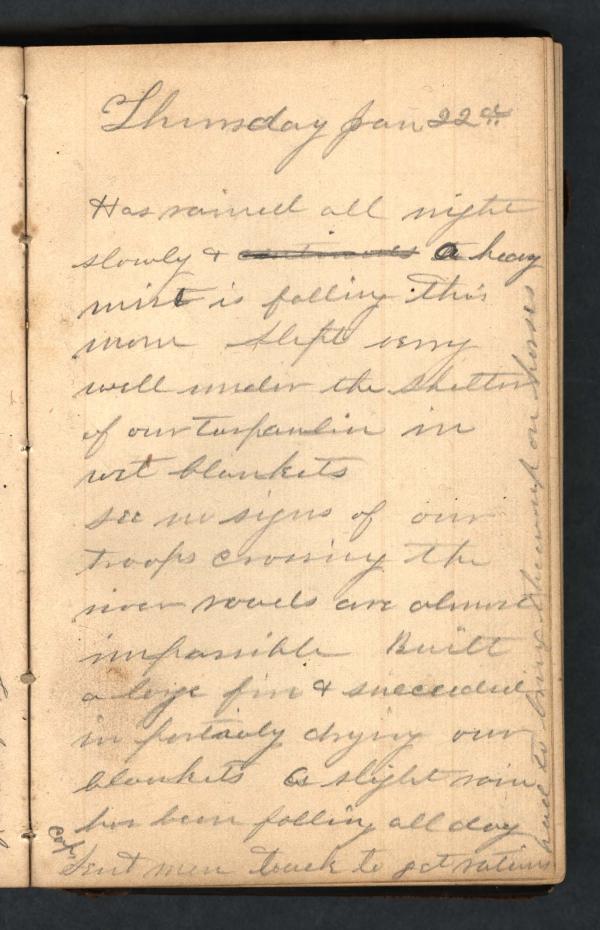 Thursday Jan 22d
Has rained all night
slowly & continues a heavy
mist is falling this
morn Slept very
well under the shelter
of our tarpaulin in
wet blankets
see no signs of our
troops crossing the
river roads are almost
impassible Built
a large fire & succeeded
in partialy drying our
blankets a slight rain
has been falling all day
Sent men back to get rations
had to bring them up on horses